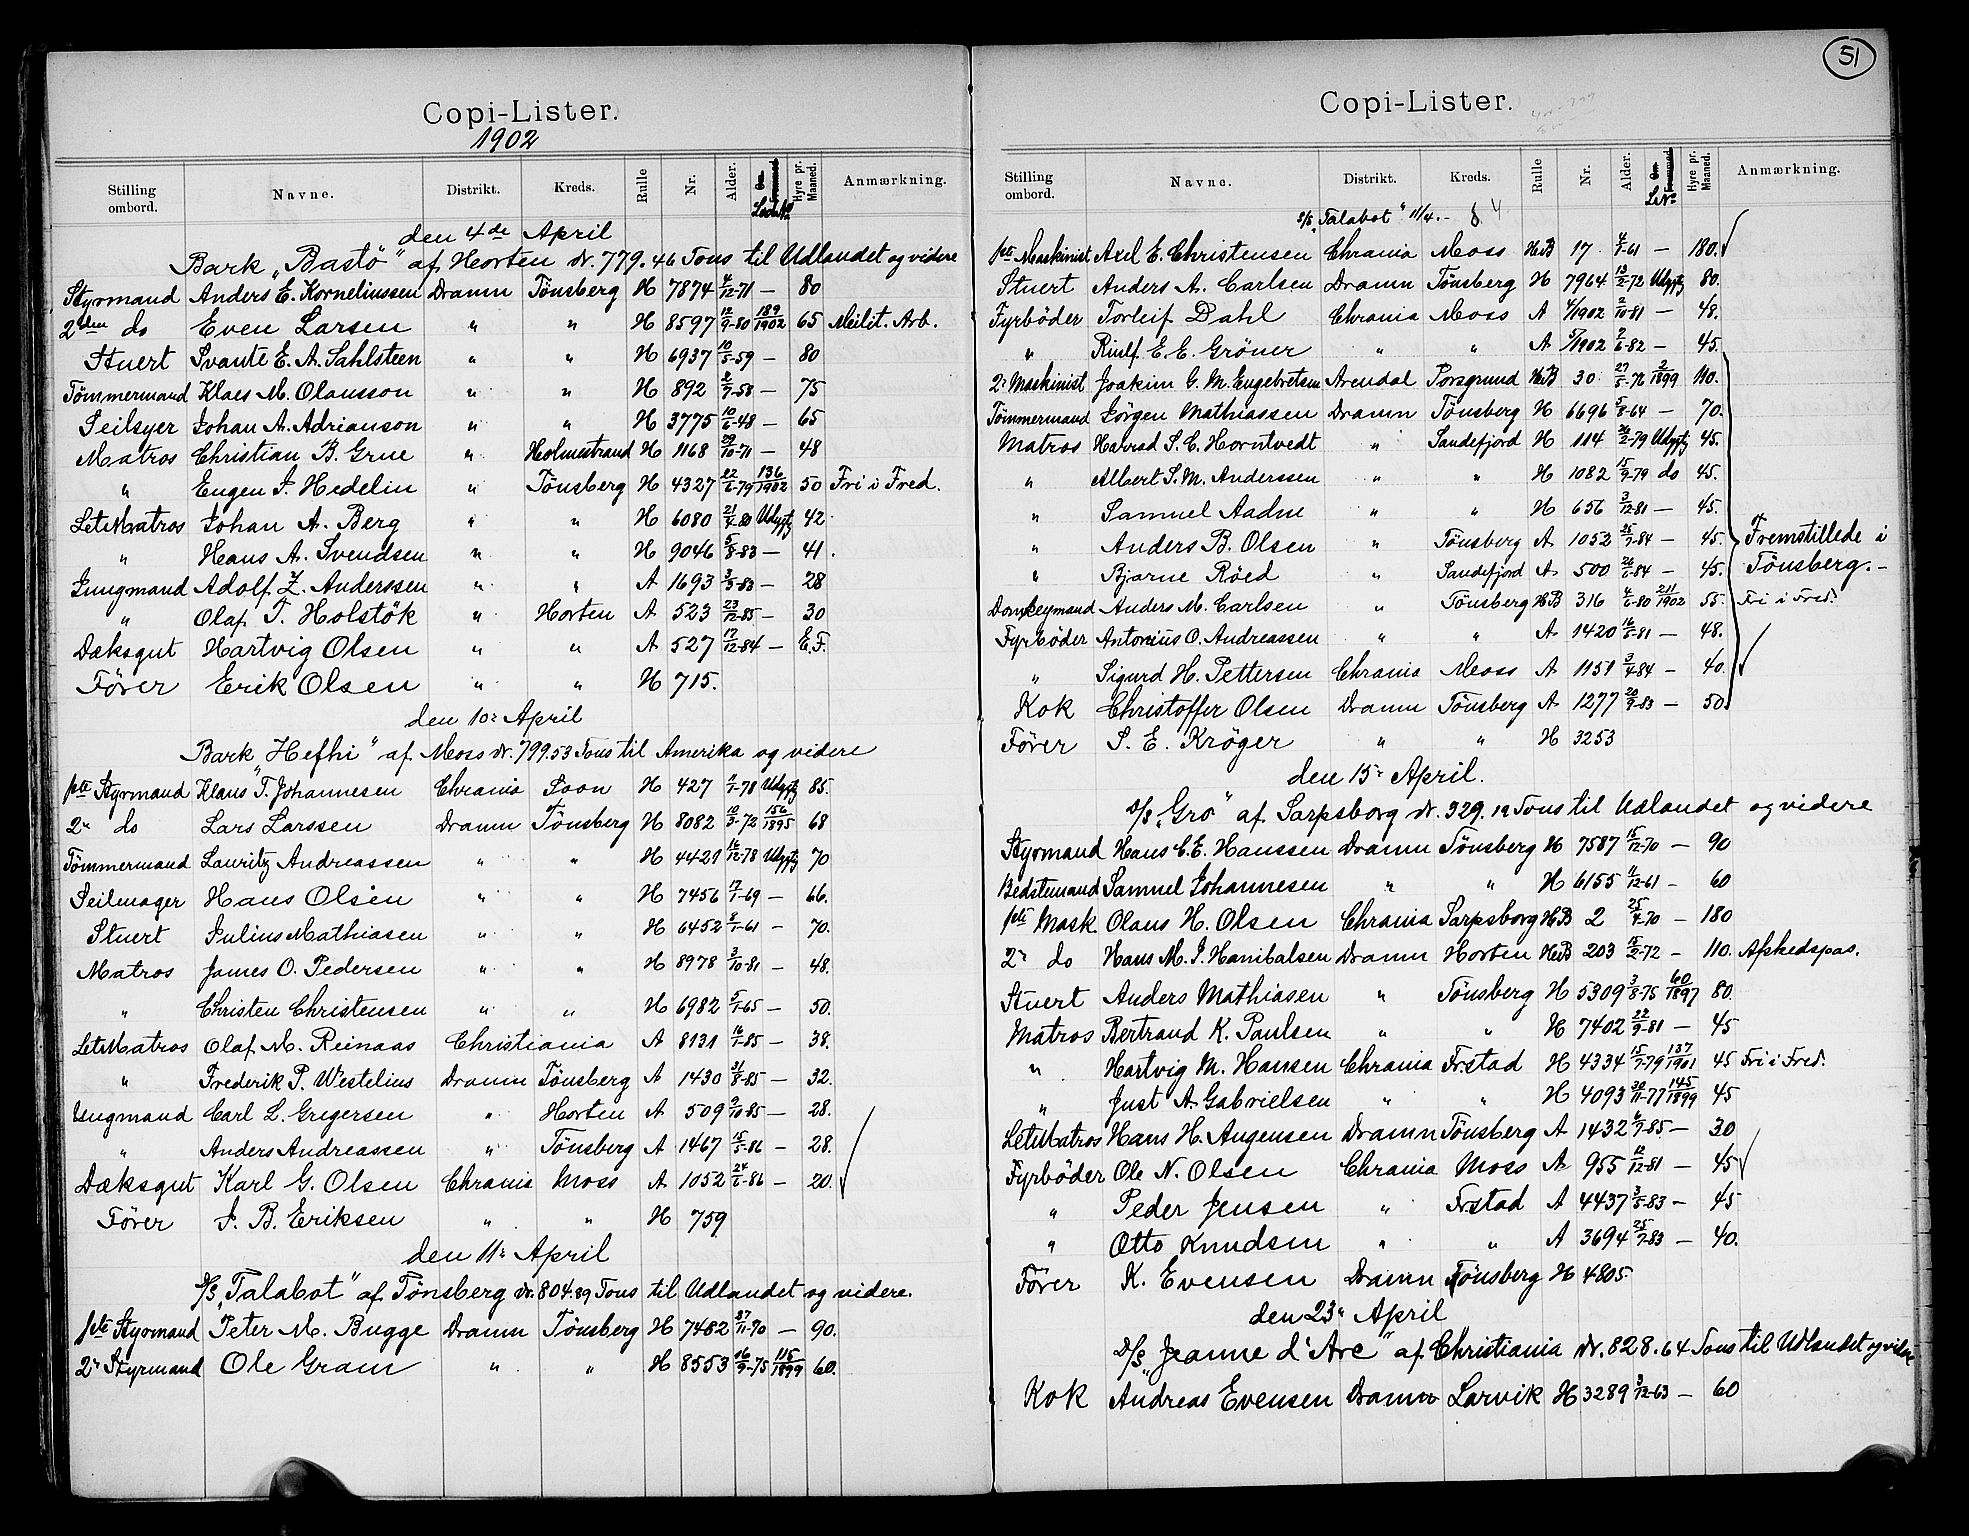 Copi-Lister.
1902
Stilling ombord. Navne. Distrikt. Kreds. Rulle Nr. Alder. Hyre pr. Maaned. Anmærkning.
den 4de April
Bark „Bastö" af Horten dr. 779.46 Tons til Udlandet og videre
Styrmand Anders E. Korneliussen Dramn Tönsberg H 7874 4/12-71 — 80
2den do Even Larsen " " H 8597 12/9-80 189/1902 65 Meilit. Arb.
Stuert Svante E. A. Sahlsteen " " H 6937 10/5-59 — 80
Tömmermand Klaes M. Olausson " " H 892 2/9-58 — 75
Seilsyer Johan A. Adrianson " " H 3775 10/6-48 — 65
Matros Christian B. Grue " Holmestrand H 1168 29/10-71 — 48
" Eugen J. Hedelin " Tönsberg H 4327 22/6-79 136/1902 50 Fri i Fred.
LetMatros Johan A. Berg " " H 6080 21/4-80 Udygtg 42
" Hans A. Svendsen " " H 9046 5/8-83 — 41.
Jungmand Adolf Z. Anderssen " " A 1693 3/5-83 — 28
" Olaf T. Holstök " Horten A 523 23/12-85 — 30
Dæksgut Hartvig Olsen " " A 527 17/12-84 — E.F.
Förer Erik Olsen " " H 715.
den 10r April
Bark „Hefhi" af Moss dr. 799.53 Tons til Amerika og videre
1ste Styrmand Klaus T. Johannesen Chrania Soon H 427 2/1-78 Udygtg 85.
2n do Lars Larssen Dramn Tönsberg H 8082 10/3-72 156/1895 68
Tömmermand Lauritz Andreassen " " H 4421 16/12-78 Udygtg 70
Seilmager Hans Olsen " " H 7456 17/1-69 — 66.
Stuert Julius Mathiasen " " H 6452 8/1-61 — 70.
Matros James O. Pedersen " " H 8978 3/10-81 — 48.
" Christen Christensen " " H 6982 5/1-65 — 50.
LetMatros Olaf M. Reinaas Christiania A 8131 16/1-85 — 38.
" Frederik P. Westelius Dramn Tönsberg A 1430 31/8-85 — 32.
Ungmand Carl L. Gregersen " Horten A 509 9/10-85 — 28.
" Anders Andreassen " Tönsberg A 1467 15/5-86 — 28.
Dæksgut Karl G. Olsen Chrania Moss A 1052 24/6-86 — 20.
Förer J. B. Eriksen " " H 759
den 11r April
D/S „Talabot" af Tönsberg dr. 804.89 Tons til Udlandet og videre.
1ste Styrmand Peter M. Bugge Dramn Tönsberg H 7482 27/11-70 — 90.
2n Styrmand Ole Gram " " H 8553 16/9-75 115/1899 60.
51
Copi-Lister.
Stilling ombord. Navne. Distrikt. Kreds. Rulle Nr. Alder. Hyre pr. Maaned. Anmærkning.
S/S „Talabot" 11/4.-
1ste Maskinist Axel E. Christensen Chrania Moss HB 17 4/5-61 — 180.
Stuert Anders A. Carlsen Dramn Tönsberg H 7964 13/2-72 Udygtg 80.
Fyrböder Torleif Dahl Chrania Moss A 4/1902 2/10-81 — 48.
" Rinlf. E. E. Gröner " " A 5/1902 7/6-82 — 45.
2n Maskinist Joakim G. M. Engebretsen Arendal Porsgrund HB 30 27/5-76 2/1899 110.
Tömmermand Jörgen Mathiassen Dramn Tönsberg H 6696 5/8-64 — 70.
Matros Havrad S. C. Horntvedt " Sandefjord H 114 26/2-79 Udygtg 45.
" Albert S. M. Anderssen " " H 1082 15/9-79 do 45.
" Samuel Aadne " " H 656 3/12-81 — 45.
" Anders B. Olsen " Tönsberg A 1052 25/7-84 — 45. Fremstillede i
" Bjarne Röed " Sandefjord A 500 26/6-84 — 45. Tönsberg. -
Donkeymand Anders M. Carlsen " Tönsberg HB 316 4/6-80 211/1902 55. Fri i Fred.
Fyrböder Antonius O. Andreassen " " A 1420 16/5-81 — 48.
" Sigurd H. Pettersen Chrania Moss A 1151 3/4-84 — 40.
Kok Christoffer Olsen Dramn Tönsberg A 1277 20/9-83 — 50.
Förer S. E. Kröger " " H 3253
den 15r April.
D/S „Gro" af Sarpsborg dr. 329.19 Tons til Udlandet og videre
Styrmand Hans C. E. Hanssen Dramn Tönsberg H 7587 15/12-70 — 90
Bedstemand Samuel Johannesen " " H 6155 11/12-61 — 60
1ste Mask Olaus H. Olsen Chrania Sarpsborg HB 2 25/4-70 — 180
2n do Hans M. J. Hanibalsen Dramn Horten HB 203 15/2-72 — 110. Afskedspas.
Stuert Anders Mathiasen " Tönsberg H 5309 3/8-75 60/1897 80.
Matros Bertrand K. Paulsen " " H 7402 22/9-81 — 45
" Hartvig M. Hansen Chrania Frstad H 4334 15/7-79 137/1901 45 Fri i Fred.
" Just A. Gabrielsen " " H 4093 30/11-77 145/1899 45
LetMatros Hans H. Augensen Dramn Tönsberg A 1432 6/7-85 — 30
Fyrböder Ole N. Olsen Chrania Moss A 955 12/12-81 — 45
" Peder Jensen " Frstad A 4437 3/5-83 — 45
" Otto Knudsen " " A 3694 25/7-83 — 40.
Förer K. Evensen Dramn Tönsberg H 4805.
den 23n April
D/S „Jeanne d'Arc" af Christiania dr. 828.64 Tons til Udlandet og videre
Kok Andreas Evensen Dramn Larvik H 3289 3/12-63 — 60